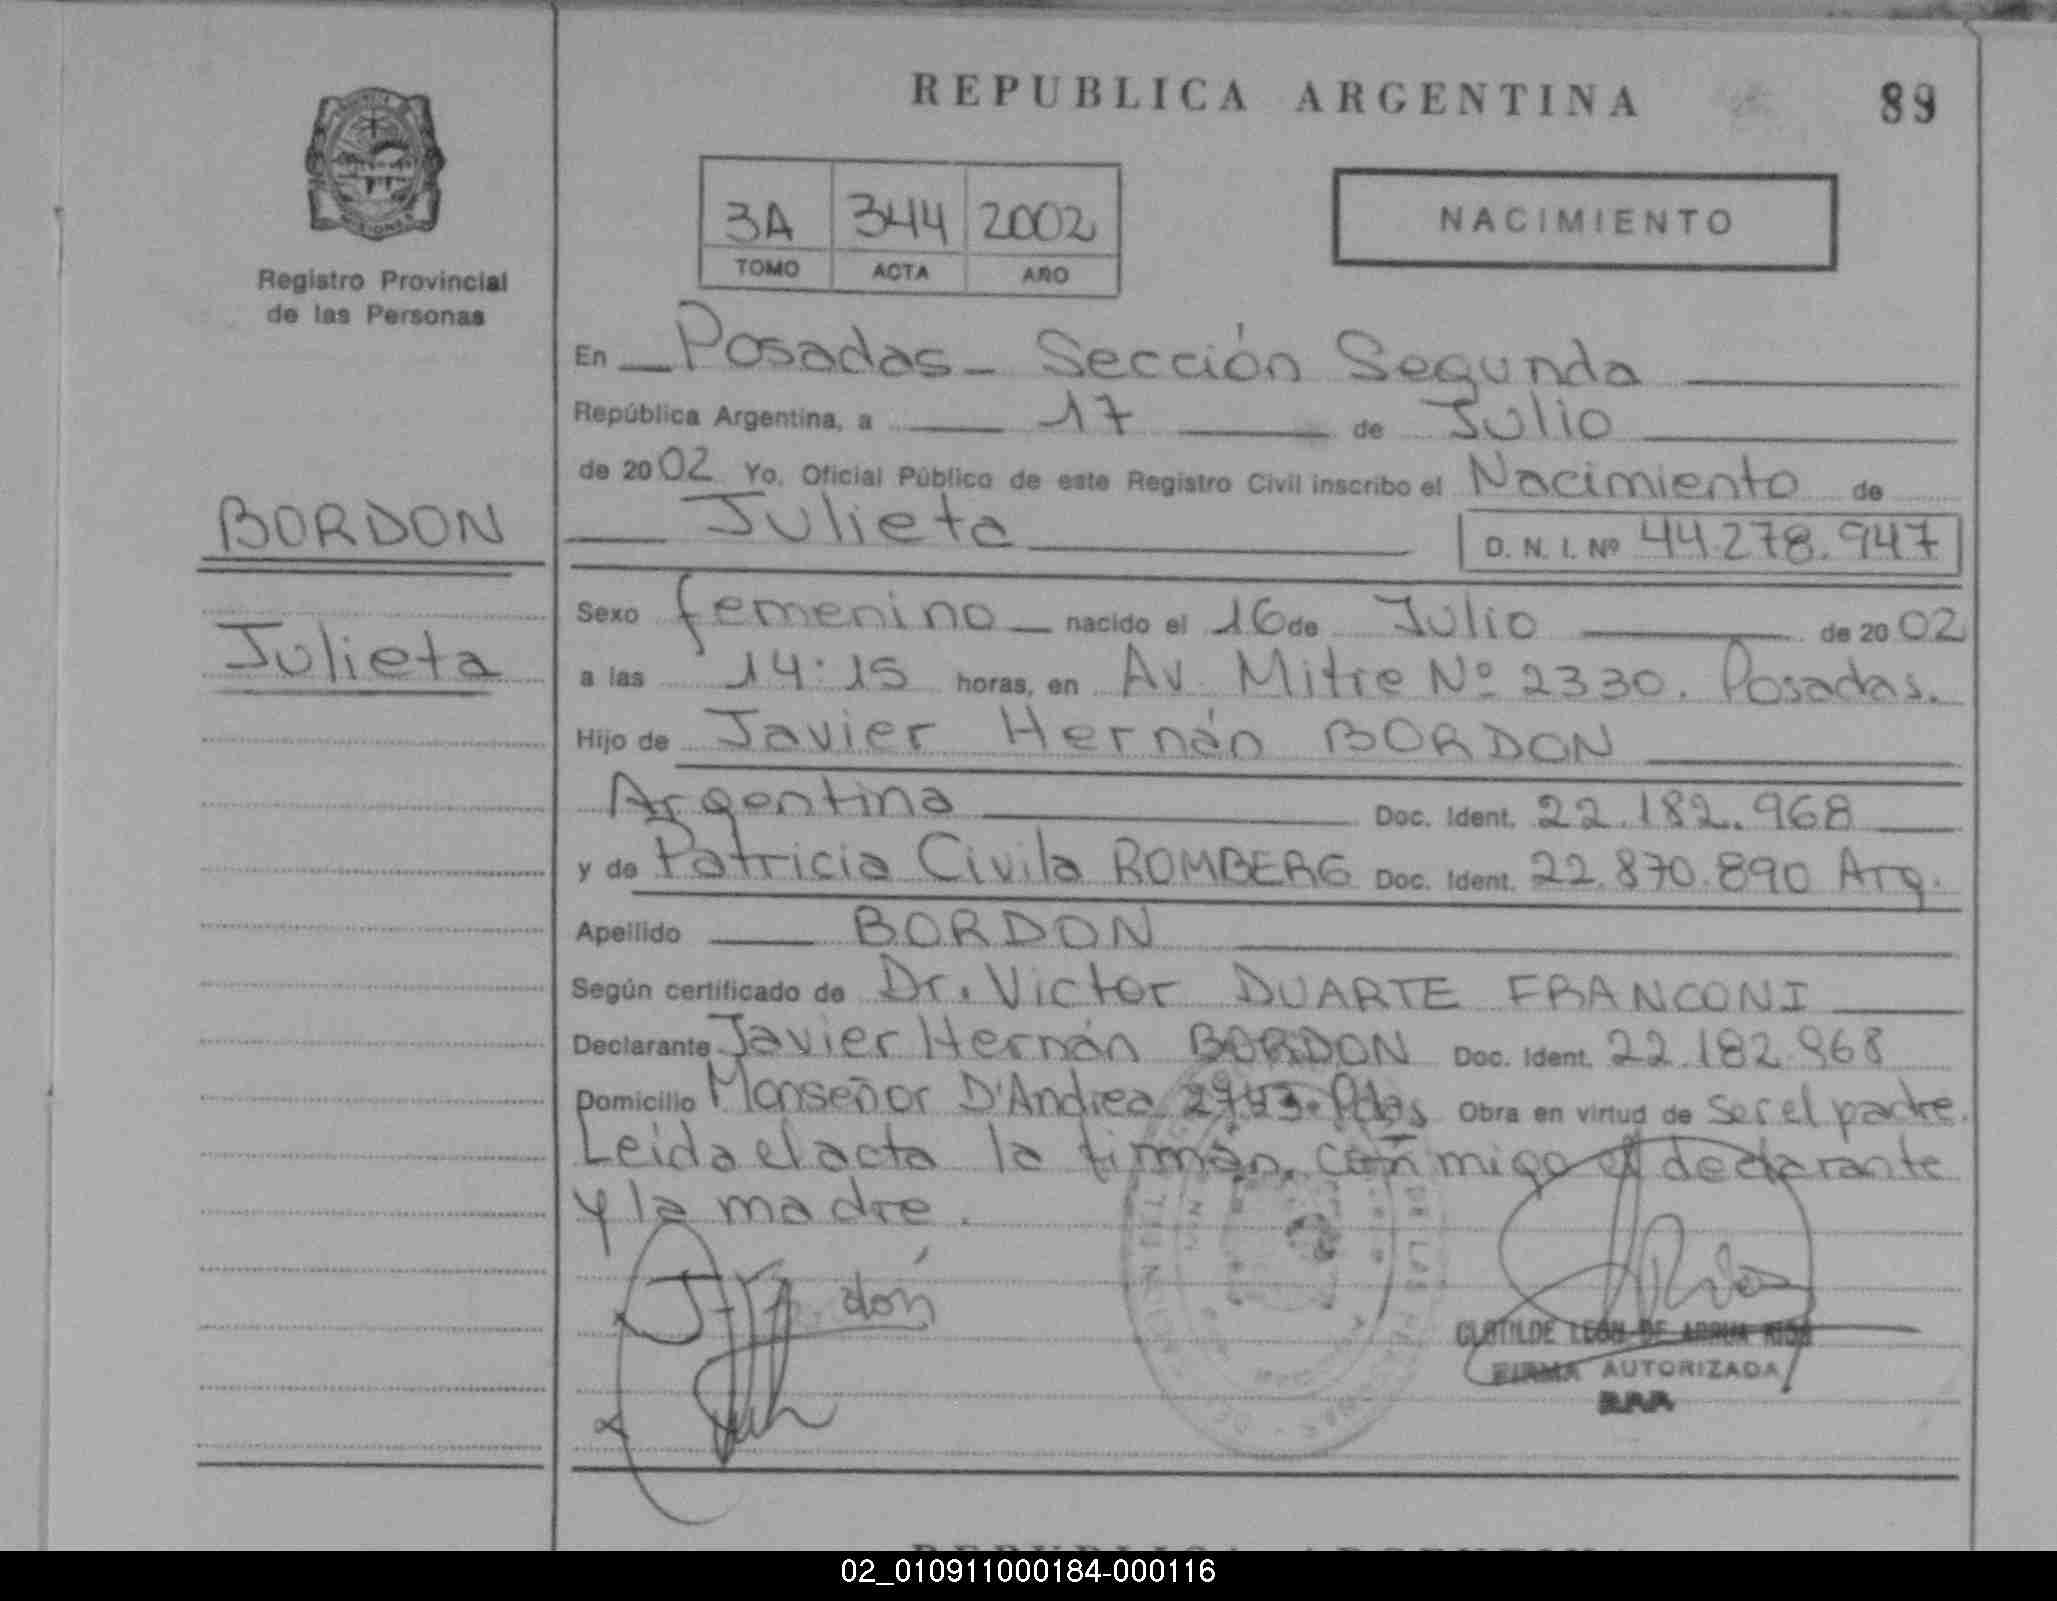 REPUBLICA ARGENTINA 89
3A 344 2002
TOMO ACTA AÑO
NACIMIENTO
Registro Provincial
de las Personas
BORDON
Julieta
En Posadas - Sección Segunda
República Argentina, a 17 de Julio
de 2002 Yo, Oficial Público de este Registro Civil inscribo el Nacimiento de
Julieta D. N. I. Nº 44.278.947
Sexo femenino nacido el 16 de Julio de 2002
a las 14:15 horas, en Av. Mitre Nº 2330. Posadas.
Hijo de Javier Hernán BORDON
Argentina Doc. Ident. 22.182.968
y de Patricia Civila ROMBERG Doc. Ident. 22.870.890 Arg.
Apellido BORDON
Según certificado de Dr. Victor DUARTE FRANCONI
Declarante Javier Hernán BORDON Doc. Ident. 22.182.968
Domicilio Monseñor D'Andrea Pdas Obra en virtud de ser el padre.
Leida el acta la firman, con migo el declarante
y la madre.
CLOTILDE LEON DE
FIRMA AUTORIZADA
02_010911000184-000116